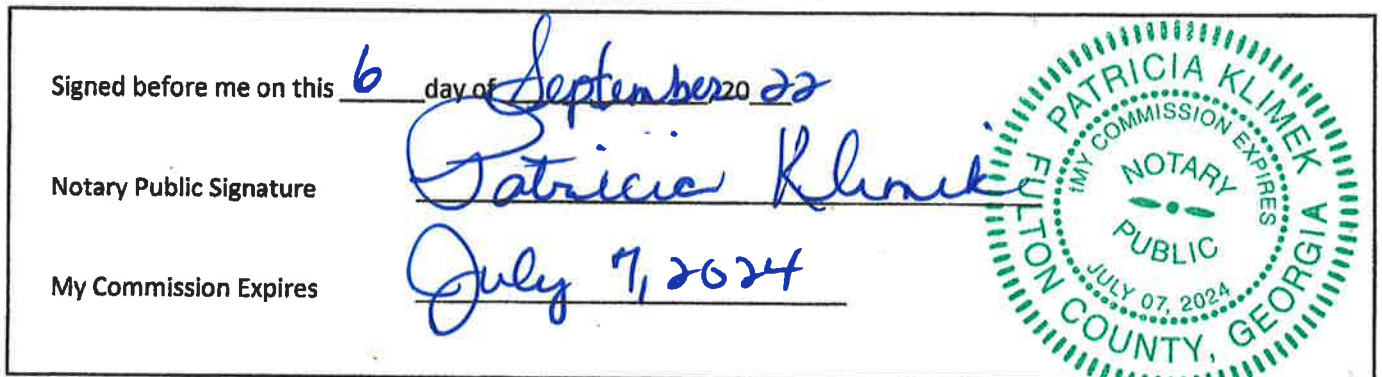 Signed before me on this 6 day of September 20 22
Notary Public Signature Patricia Klimek
My Commission Expires July 7, 2024
PATRICIA KLIMEK
FULTON COUNTY, GEORGIA
MY COMMISSION EXPIRES
NOTARY
PUBLIC
JULY 07, 2024